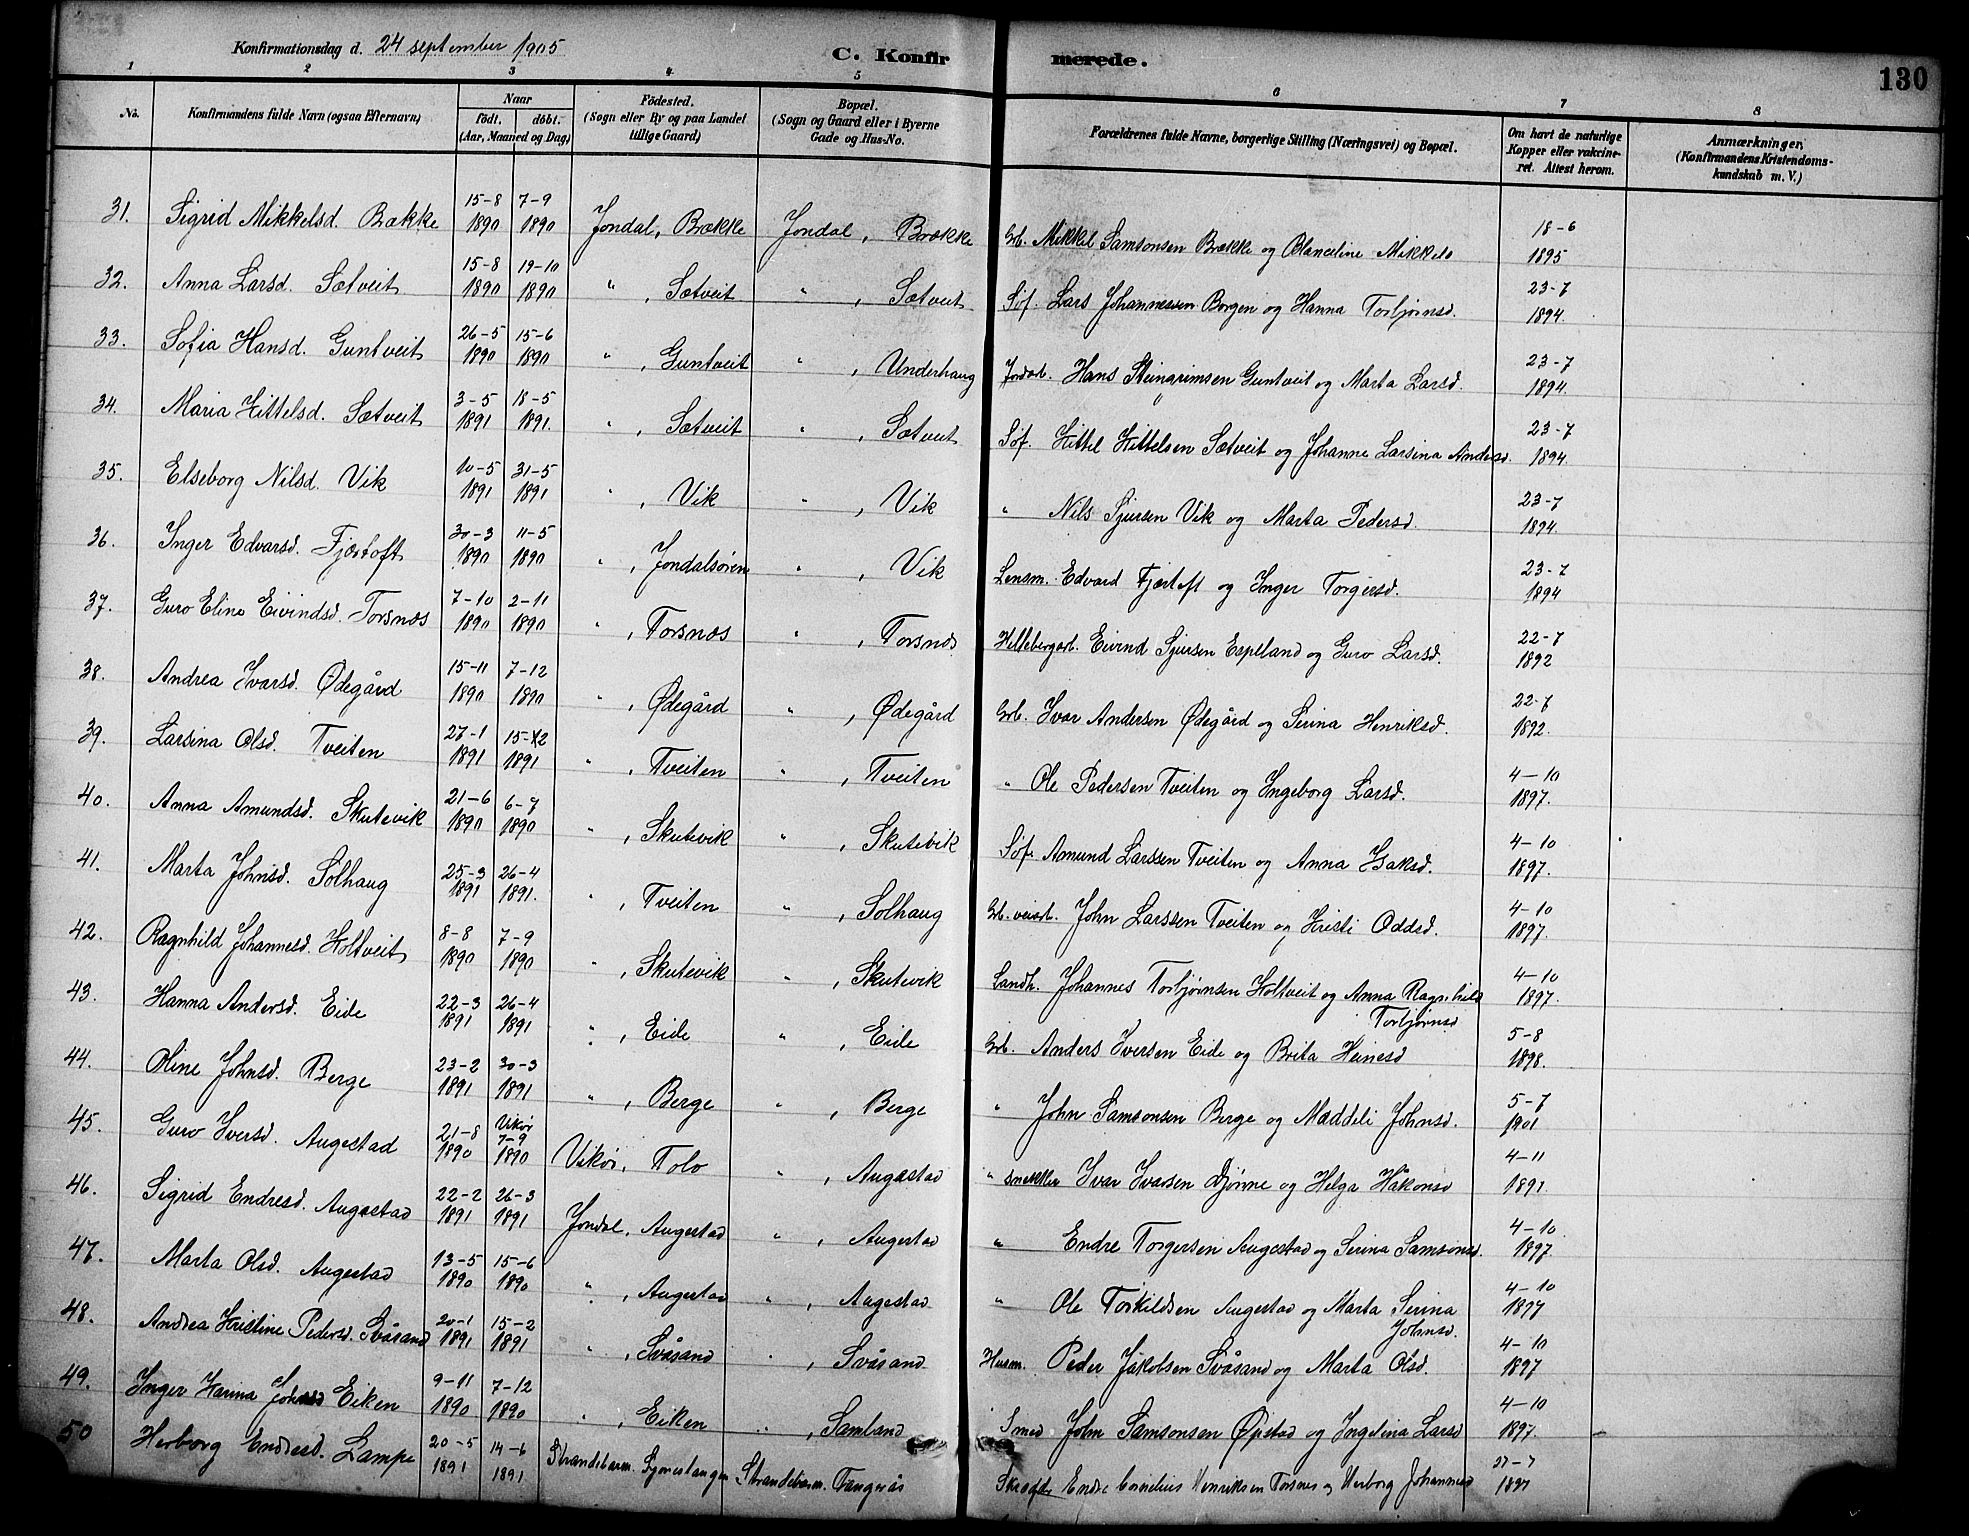 Konfirmationsdag d. 24 september 1905
C. Konfirmerede.
130
1 2 3 4 5 6 7 8
No.
Konfirmandens fulde Navn (ogsaa Efternavn)
Naar
födt. döbt.
(Aar, Maaned og Dag)
Födested.
(Sogn eller By og paa Landet
tillige Gaard)
Bopæl.
(Sogn og Gaard eller i Byerne
Gade og Hus-No.
Forældrenes fulde Navne, borgerlige Stilling (Næringsvei) og Bopæl.
Om havt de naturlige
Kopper eller vakcine-
ret. Attest herom.
Anmærkninger.
(Konfirmandens Kristendoms-
kundskab m. V.)
31. Sigrid Mikkelsd. Brække 15-8 1890 7-9 1890 Jondal, Brække Jondal, Brække Grb. Mikkel Samsonsen Brække og Blanceline Mikkels 18-6 1895
32. Anna Larsd. Sætveit 15-8 1890 19-10 1890 " , Sætveit " , Sætveit Søf. Lars Johannessen Borgen og Hanna Torbjørnsd. 23-7 1894.
33. Sofia Hansd. Guntveit 26-5 1890 15-6 1890 " , Guntveit " , Underhaug Jordarb. Hans Steingrimsen Guntveit og Marta Larsd. 23-7 1894.
34. Maria Kittelsd. Sætveit 3-5 1891 18-5 1891. " , Sætveit " , Sætveit Søf. Kittel Kittelsen Sætveit og Johanne Larsina Andersd. 23-7 1894.
35. Elseborg Nilsd. Vik 10-5 1891 31-5 1891 " , Vik " , Vik " Nils Sjursen Vik og Marta Pedersd. 23-7 1894.
36. Inger Edvarsd. Fjærtoft 30-3 1890 11-5 1890 " , Jondalsøren " , Vik Lensm. Edvard Fjærtoft og Inger Torgersd. 23-7 1894
37. Guro Eline Eivindsd. Torsnæs 7-10 1890 2-11 1890 " , Torsnæs " , Torsnæs Hellebergarb. Eivind Sjursen Espeland og Guro Larsd. 22-7 1892
38. Andrea Ivarsd. Ødegård 15-11 1890 7-12 1890 " , Ødegård " , Ødegård Grb. Ivar Andersen Ødegård og Serina Henriksd. 22-7 1892.
39. Larsina Olsd. Tveiten 27-1 1891 15-2 1891 " , Tveiten " , Tveiten " Ole Pedersen Tveiten og Ingeborg Larsd. 4-10 1897.
40. Anna Amundsd. Skutevik 21-6 1890 6-7 1890 " , Skutevik " , Skutevik Søf. Amund Larssen Tveiten og Anna Isaksd. 4-10 1897.
41. Marta Johnsd. Solhaug 25-3 1891 26-4 1891. " , Tveiten " , Solhaug Grb. veiarb. John Larssen Tveiten og Kristi Oddsd. 4-10 1897.
42. Ragnhild Johannesd. Holtveit 8-8 1890 7-9 1890 " , Skutevik " , Skutevik Landh. Johannes Torbjørnsen Holtveit og Anna Ragnhild 4-10 1897.
Torbjørnsd
43. Hanna Andersd. Eide 22-3 1891 26-4 1891 " , Eide " , Eide Grb. Anders Iversen Eide og Brita Heinesd 5-8 1898.
44. Oline Johnsd. Berge 23-2 1891 30-3 1891 " , Berge " , Berge " John Samsonsen Berge og Maddeli Johnsd. 5-7 1901
45. Guro Iversd. Augestad 21-8 1890 Vikør 7-9 1890 Vikør, Tolo " , Augestad " snekker Ivar Ivarsen Djønne og Helga Håkonsd 4-11 1891.
46. Sigrid Endresd. Augestad 22-2 1891 26-3 1891 Jondal, Augestad " , Augestad " Endre Torgersen Augestad og Serina Samsonsd. 4-10 1897.
47. Marta Olsd. Augestad 13-5 1890 15-6 1890 " , Augestad " , Augestad " Ole Torkildsen Augestad og Marta Serina 4-10 1897
Johnsd.
48. Andrea Kristine Pedersd. Svåsand 20-1 1891 15-2 1891 " , Svåsand " , Svåsand Husm. Peder Jakobsen Svåsand og Marta Olsd. 4-10 1897
49. Inger Karina Johnsd Eiken 9-11 1890 7-12 1890 " , Eiken " , Samland Smed John Samsonsen Øpstad og Ingelina Larsd 4-10 1897.
50 Herborg Endresd. Lampe 20-5 1891 14-6 1891 Strandebarm. Strandebarm. Tangerås Endre Cornelius Henriksen Torsnes og Herborg Johannesd